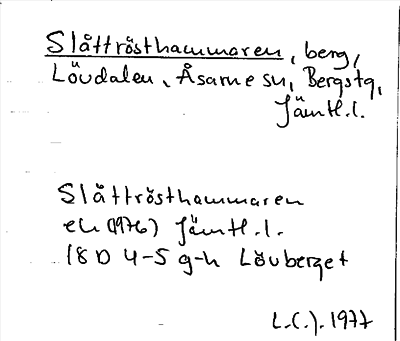 Slåttrösthammaren, berg,
Lövdalen, Åsarne sn, Bergstg,
Jämtl.l.
Slåttrösthammaren
ek (1976) Jämtl.l.
18 D 4-5 g-h Lövberget
L.C.J. 1977